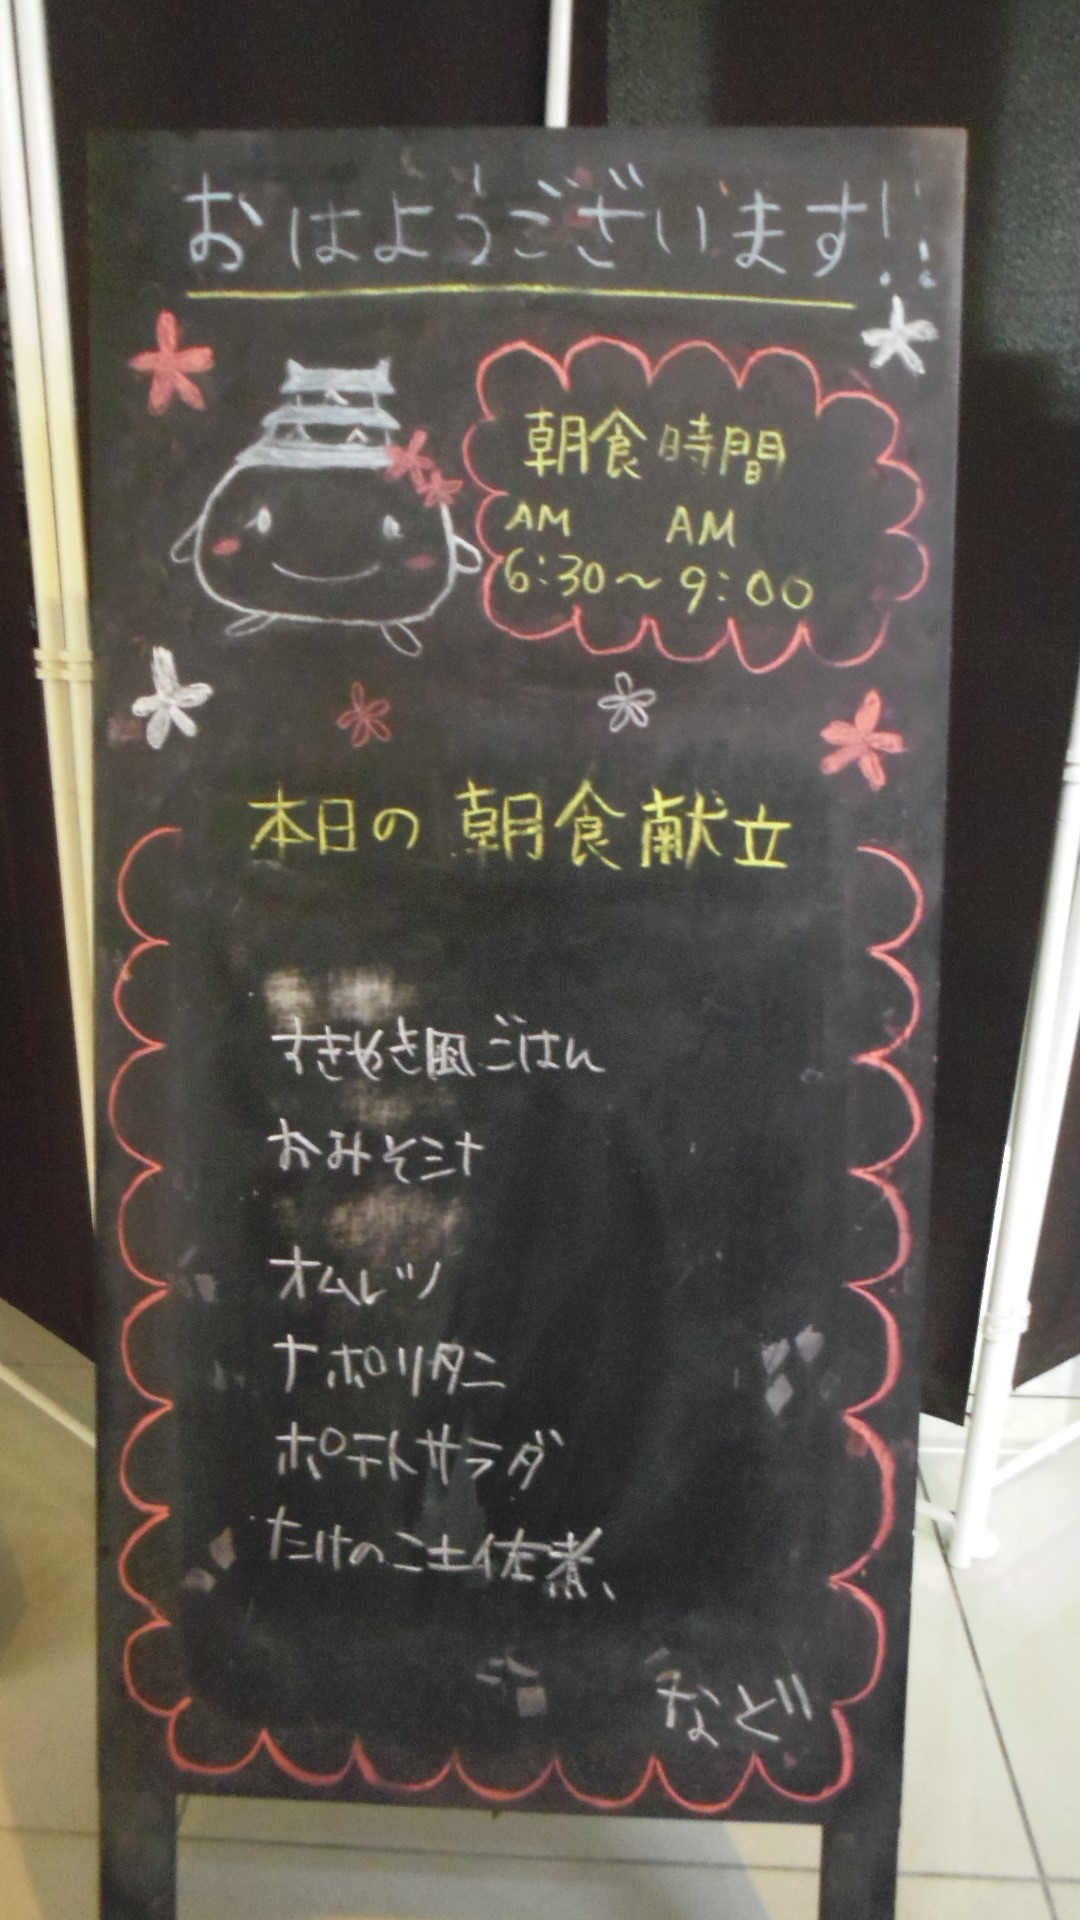 おはようございます!!
朝食時間
AM AM
6:30〜9:00
本日の朝食献立
すきやき風ごはん
おみそ汁
オムレツ
ナポリタン
ポテトサラダ
たけのこ土佐煮
など